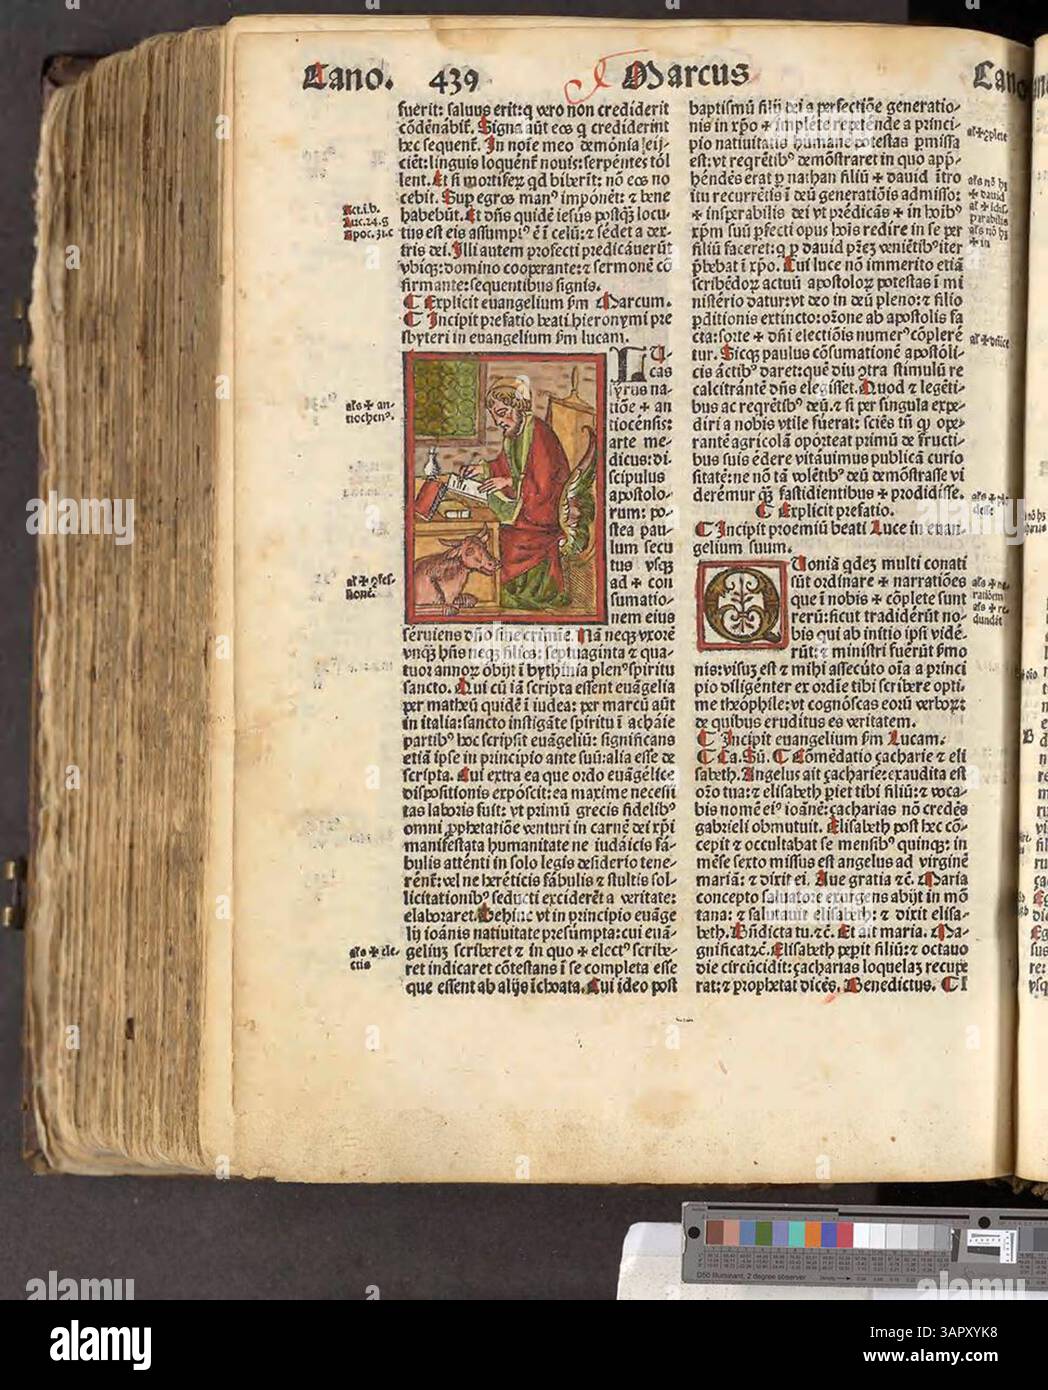 Cano. 439 Marcus Cano
fuerit: saluus erit: q vero non crediderit
cōdēnabit̃. Signa aūt eos q crediderint
hec sequent̃. In noīe meo demonia eij-
ciēt: linguis loquent̃ nouis: serpentes tol
lent. Et si mortiferū qd biberīt: nō eos no
cebit. Sup egros man⁹ imponēt: ⁊ bene
habebūt. Et dn̄s quidē iesus postq̄ʒ locu
tus est eis assumpt⁹ ē ī celū: ⁊ sedet a dex-
tris dei. Illi autem profecti predicauerūt
vbiqʒ: domino cooperante: ⁊ sermonē cō
firmante: sequentibus signis.
¶ Explicit euangelium s̄m Marcum.
¶ Incipit prefatio beati hieronymi pre
sbyteri in euangelium s̄m lucam.
Act.i.b.
Luc.24.g
Apoc.31.c
LU-
cas
syrus na-
tiōe + an
tiocēsis:
arte me-
dicus: di-
scipulus
apostolo-
rum: po-
stea pau-
lum secu
tus vsqʒ
ad + con
sumatio-
nem eius
als + an-
tiochen⁹.
als + ꝯfes-
sionē.
seruiens dn̄o sine crimīe. Nā neqʒ vxorē
vnqʒ hn̄s neqʒ filios: septuaginta ⁊ qua-
tuor annoꝝ obijt ī bythinia plen⁹ spiritu
sancto. Qui cū iā scripta essent euāgelia
per matheū quidē ī iudea: per marcū aūt
in italia: sancto instigāte spiritu ī achaie
partib⁹ hoc scripsit euāgeliū: significans
etiā ipse in principio ante suū: alia esse de
scripta. Cui extra ea que ordo euāgelice
dispositionis exposcit: ea maxime necessi
tas laboris fuit: vt primū grecis fidelib⁹
omni ꝓphetatiōe venturi in carnē dei xp̄i
manifestata humanitate ne iudaicis fa-
bulis attenti in solo legis desiderio tene-
rent̃: vel ne hereticis fabulis ⁊ stultis sol-
licitationib⁹ seducti exciderēt a veritate:
elaboraret. Dehinc vt in principio euāge
lij ioānis natiuitate presumpta: cui euā-
geliuʒ scriberet ⁊ in quo + elect⁹ scribe-
ret indicaret cōtestans ī se completa esse
que essent ab alijs īchoata. Cui ideo post
als + ele-
ctus
baptismū filij dei a perfectiōe generatio-
nis in xp̄o + implete repetende a princi-
pio natiuitatis humane potestas pmissa
est: vt reqrētib⁹ demōstraret in quo app̄-
hendēs erat p nathan filiū + dauid ītro
itu recurrētis ī deū generatiōis admisso:
+ insperabilis dei vt predicās + in hoīb⁹
xp̄m suū pfecti opus hoīs redire in se per
filiū faceret: q p dauid pr̄eʒ veniētib⁹ iter
p̄bebat ī xp̄o. Cui luce nō immerito etiā
scribēdoꝝ actuū apostoloꝝ potestas ī mi
nisterio datur: vt deo in deū pleno: ⁊ filio
pditionis extincto: or̄one ab apostolis fa
cta: sorte + dn̄i electiōis numer⁹ cōplere
tur. Sicqʒ paulus cōsumationē apostoli-
cis actib⁹ daret: quē diu ꝯtra stimulū re
calcitrantē dn̄s elegisset. Quod ⁊ legēti-
bus ac reqrētib⁹ deū. ⁊ si per singula expe-
diri a nobis vtile fuerat: sciēs tn̄ ꝙ ope-
rantē agricolā oporteat primū de fructi-
bus suis edere vitauimus publicā curio
sitatē: ne nō tā volētib⁹ deū demōstrasse vi
deremur q̄ʒ fastidientibus + prodidisse.
¶ Explicit prefatio.
¶ Incipit proemiū beati Luce in euan-
gelium suum.
QUoniā qdeʒ multi conati
sūt ordinare + narratiōes
que ī nobis + cōplete sunt
rerū: sicut tradiderūt no-
bis qui ab initio ipsi vide-
rūt: ⁊ ministri fuerūt s̄mo
nis: visuʒ est ⁊ mihi assecuto oīa a princi
pio diligēter ex ordīe tibi scribere opti-
me theophile: vt cognoscas eorū verboꝝ:
de quibus eruditus es veritatem.
¶ Incipit euangelium s̄m Lucam.
¶ Ca. Sū. ¶ Cōmēdatio çacharie ⁊ eli
sabeth. Angelus ait çacharie: exaudita est
or̄o tua: ⁊ elisabeth piet tibi filiū: ⁊ voca-
bis nomē ei⁹ ioānē: çacharias nō credēs
gabrieli obmutuit. Elisabeth post hec cō-
cepit ⁊ occultabat se mensib⁹ quinqʒ: in
mēse sexto missus est angelus ad virginē
mariā: ⁊ dixit ei. Aue gratia ⁊c̄. Maria
concepto saluatore exurgens abijt in mō
tana: ⁊ salutauit elisabeth: ⁊ dixit elisa-
beth. Bn̄dicta tu. ⁊c̄. Et ait maria. Ma-
gnificat ⁊c̄. Elisabeth pepit filiū: ⁊ octauo
die circūcidit: çacharias loquelaʒ recupe
rat: ⁊ prophetat dicēs. Benedictus. ¶ I
al + cōplete
als nō hʒ
+ dauid
als nō hʒ
+ in
al + dn̄ice
D50 Illuminant, 2 degree observer
Density
alamy
Image ID: 3APXYK8
www.alamy.com